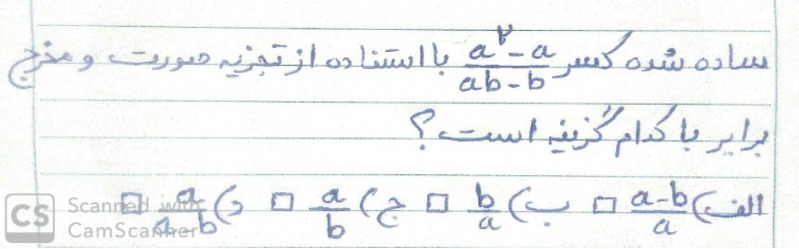 ساده شده کسر (a²-a)/(ab-b) با استفاده از تجزیه صورت و مخرج
برابر با کدام گزینه است؟
الف) (a-b)/a □ ب) b/a □ ج) a/b □ د) a/(a-b) □
CS Scanned with CamScanner